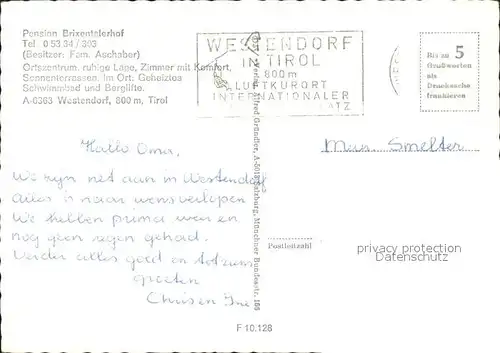 Pension Brixentalerhof
Tel 05334/303
(Besitzer: Fam. Aschaber)
Ortszentrum, ruhige Lage, Zimmer mit Komfort,
Sonnenterrassen. Im Ort: Geheiztes
Schwimmbad und Berglifte.
A-6363 Westendorf, 800 m, Tirol
WESTENDORF
IN TIROL
800 m
LUFTKURORT
INTERNATIONALER
PLATZ
Bis zu 5
Grußworten
als
Drucksache
frankieren
Hallo Oma,
We zyn net aan in Westendorf
Alles is naar wens verlopen
We hebben prima weer en
nog geen regen gehad.
Verder alles goed en tot ziens
groeten
Mevr. Smelter
Postleitzahl
privacy protection
Datenschutz
Verlag Alfred Gründler, A-5013 Salzburg, Münchner Bundesstr. 156
F 10.128